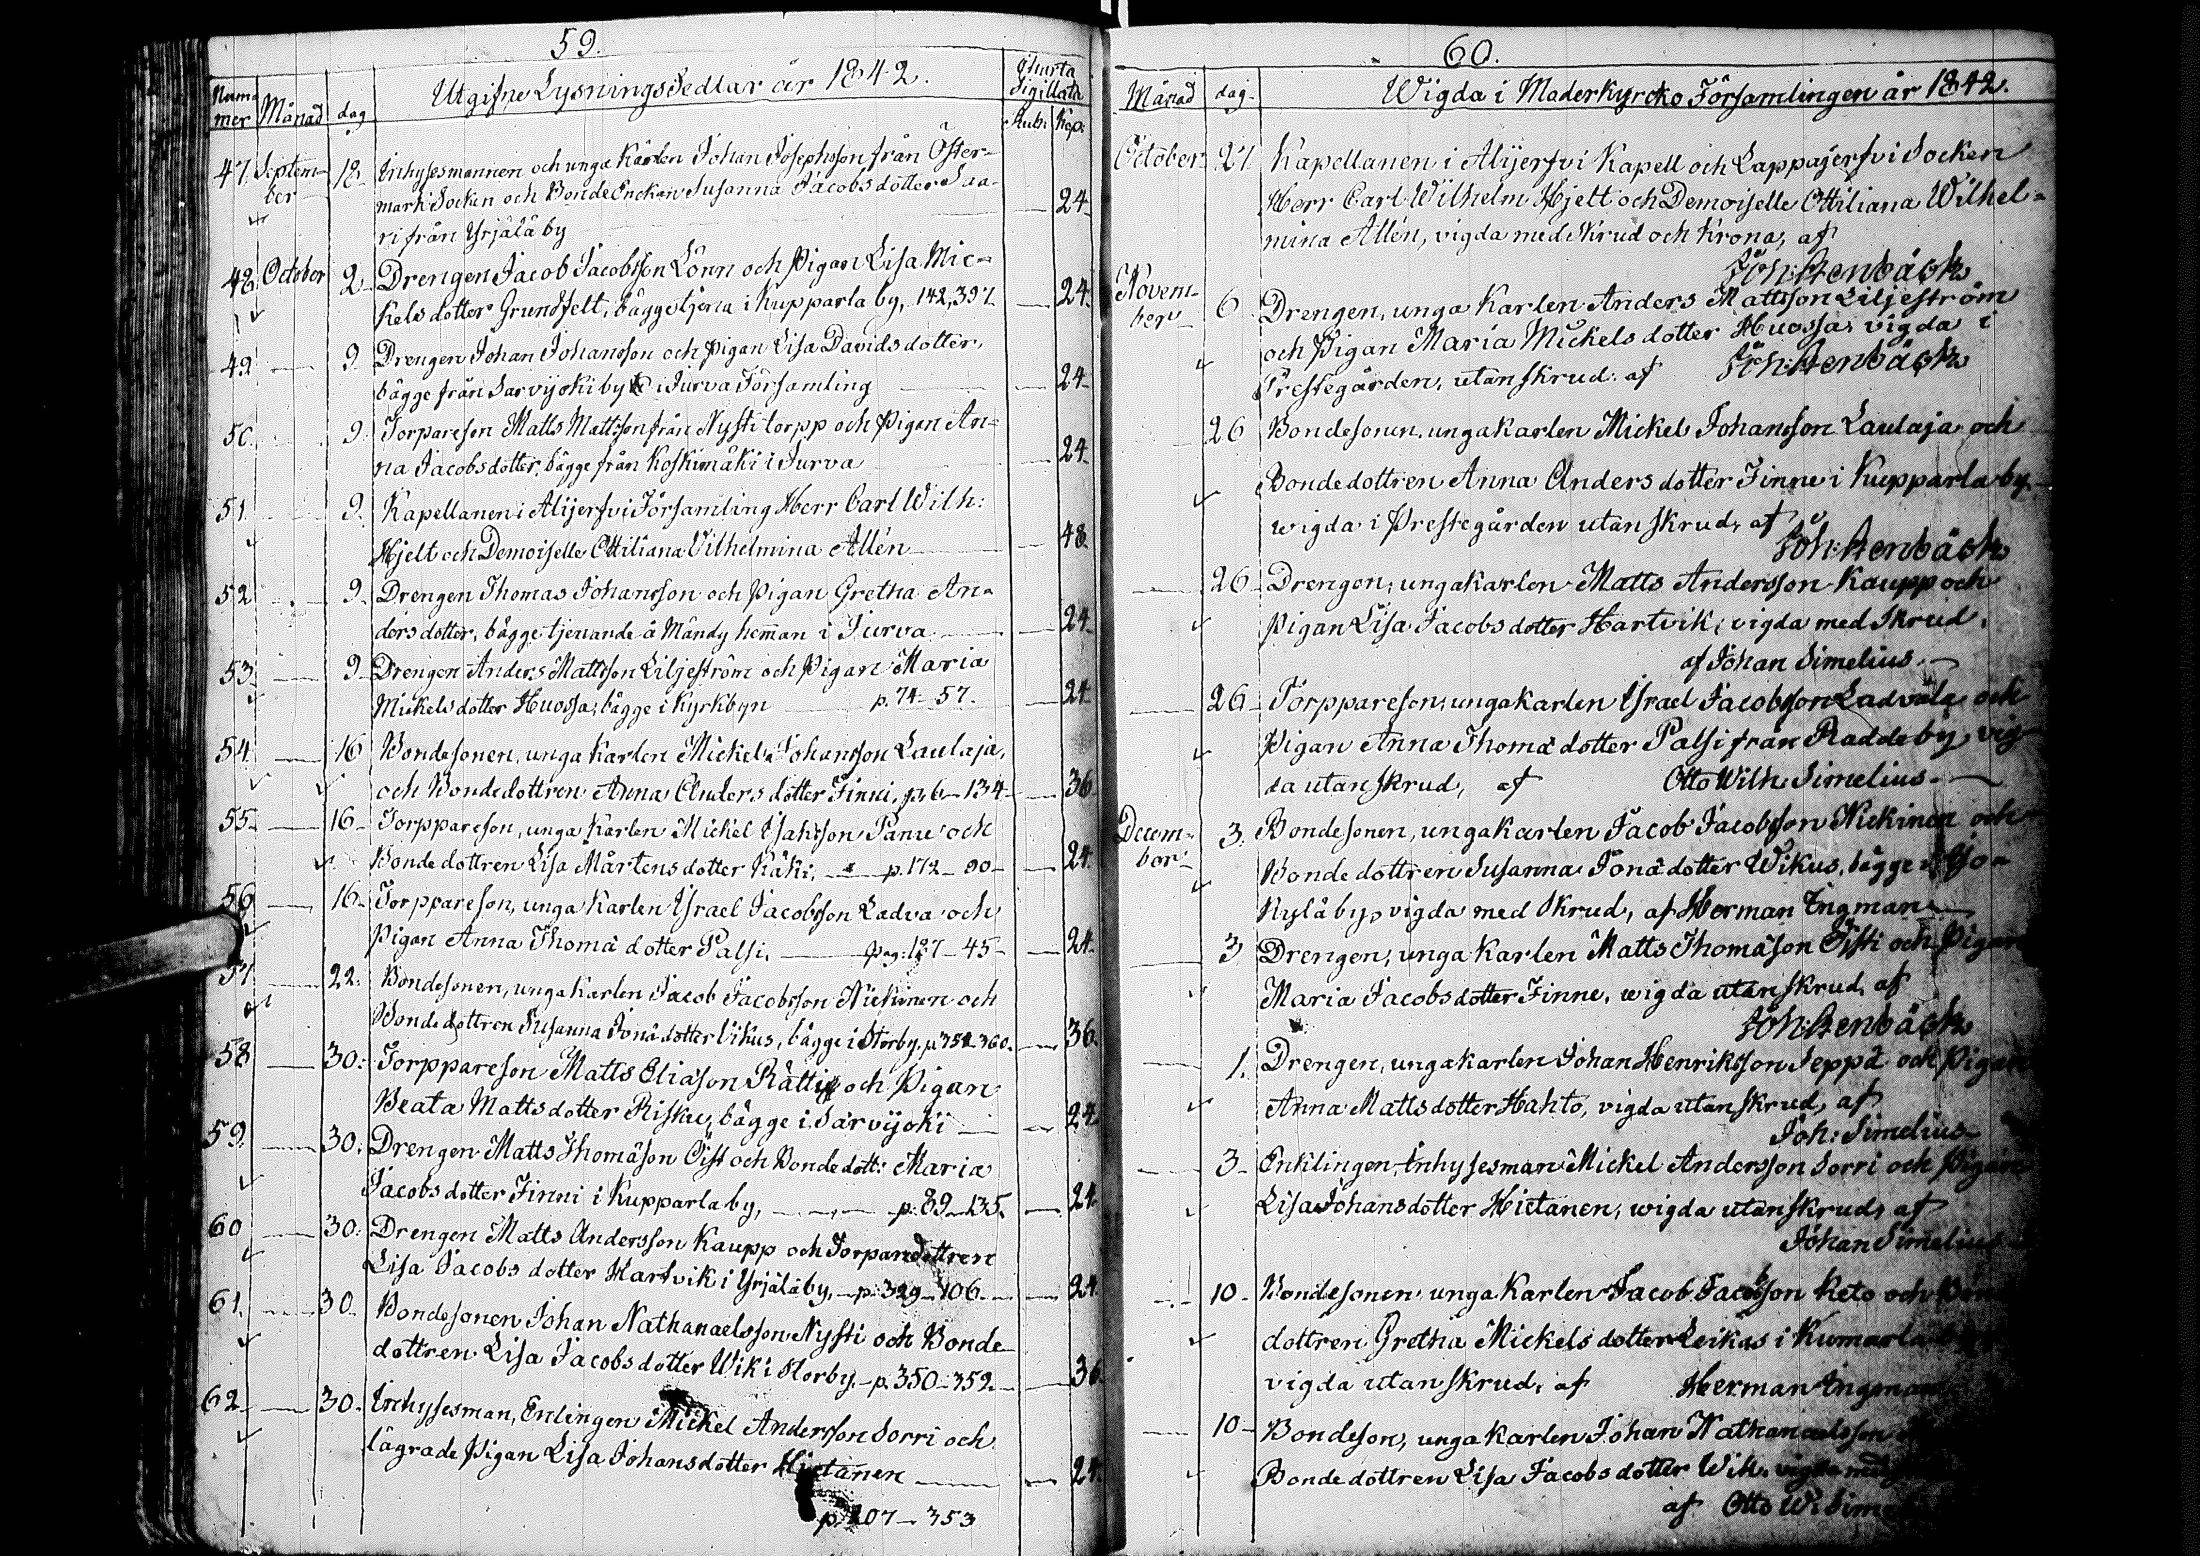 59.
Utgifne Lysnings Sedlar år 1842.
Charta Sigillata
Num=
mer Månad dag Rub: Kop:
47. Septem= 18 Inhysesmannen och unga Karlen Johan Josephsson från Öster=
ber mark Socken och Bonde Enckan Susanna Jacobs dotter Saa= 24
ri från Yrjälä by
48 October 2 Drengen Jacob Jacobsson Lönn och Pigan Lisa Mic=
kels dotter Grundfelt, bägge tjena i Kupparla by, 142, 397. 24.
49 9 Drengen Johan Johansson och Pigan Lisa Davids dotter,
bägge från Sarvijoki by i Jurva Församling 24
50 9. Torpareson Matts Mattsson från Nysti torpp och Pigan An=
na Jacobs dotter, bägge från Koskimäki i Jurva 24
51 9. Kapellanen i Alijerfvi Församling Herr Carl Wilh:
Hjelt och Demoiselle Ottiliana Vilhelmina Allén 48.
52 9. Drengen Thomas Johansson och Pigan Gretha An=
ders dotter, bägge tjenande å Mändy hemman i Jurva 24
53 9 Drengen Anders Mattsson Liljeström och Pigan Maria
Mickels dotter Huossa, bägge i Kyrkbyn p. 74 - 57. 24
54 16 Bondesonen, unga Karlen Mickel Johansson Laulaja,
och Bondedottren Anna Anders dotter Finni, p. 6 - 134 36
55 16 Torppareson, unga Karlen Mickel Isaksson Panu och
Bonde dottren Lisa Mårtens dotter Käki, p. 172 - 90 24
56 16 Torppareson, unga Karlen Israel Jacobsson Ladva och
Pigan Anna Thomä dotter Palsi, pag: 127 - 45 24
57 22. Bondesonen, unga Karlen Jacob Jacobsson Niekinen och
Bonde dottren Susanna Jonä dotter Vikus, bägge i Storby, p. 351 - 360. 36
58 30. Torppareson Matts Eliäson Rätti och Pigan
Beata Matts dotter Risku, bägge i Sarvijoki 24
59. 30. Drengen Matts Thomäson Öist och Bonde dott: Maria
Jacobs dotter Finni i Kupparla by, p. 89 - 135. 24
60 30. Drengen Matts Andersson Kaupp och Torparedottren
Lisa Jacobs dotter Hartvik i Yrjälä by, p. 329 - 106. 24
61. 30. Bondesonen Johan Nathanaelsson Nysti och Bonde
dottren Lisa Jacobs dotter Wik i Storby, p. 350 - 352 36
62 30. Inhysesman, Enclingen Mickel Andersson Sorri och
lägrade Pigan Lisa Johans dotter Hietanen 24.
p. 107 - 353
60.
Månad dag. Wigda i Moderkyrcko Församlingen år 1842.
October 27 Kapellanen i Alijerfvi Kapell och Lappajerfvi Socken
Herr Carl Wilhelm Hjelt och Demoiselle Ottiliana Wilhel=
mina Allén, vigda med Skrud och Krona, af
Joh: Aenbäck
Novem= 6 Drengen, unga Karlen Anders Mattsson Liljeström
ber och Pigan Maria Mickels dotter Huossa, vigda i
Prestegården, utan skrud. af Joh: Aenbäck
26 Bondesonen, unga karlen Mickel Johansson Laulaja och
Bonde dottren Anna Anders dotter Finne i Kupparla by,
wigda i Prestegården utan skrud, af
Joh: Aenbäck
26 Drengen, unga karlen Matts Andersson Kaupp och
Pigan Lisa Jacobs dotter Hartvik, vigda med Skrud.
af Johan Simelius
26 Torppareson, unga karlen Israel Jacobsson Ladvala och
Pigan Anna Thomä dotter Palsi från Radde by, vig
da utan skrud, af Otto Wilh. Simelius
Decem= 3. Bondesonen, unga karlen Jacob Jacobsson Niekinen och
ber Bonde dottren Susanna Jonä dotter Wikus, bägge i Iso=
kylä by, vigda med Skrud, af Herman Ingman
3 Drengen, unga Karlen Matts Thomäson Öisti och Pigan
Maria Jacobs dotter Finne, wigda utan skrud, af
Joh: Aenbäck
1. Drengen, unga karlen Johan Henriksson Seppä och Pigan
Anna Matts dotter Hahto, vigda utan skrud, af
Joh: Simelius
3 Enklingen, Inhysesman Mickel Andersson Sorri och Pigan
Lisa Johans dotter Hietanen, wigda utan skrud, af
Johan Simelius
10 Bondesonen unga Karlen Jacob Jacobsson Keto och
dottren Gretha Mickels dotter Leikas i Kumarla
vigda utan skrud, af Herman Ingman
10 Bondeson, unga karlen Johan Nathanaelsson
Bonde dottren Lisa Jacobs dotter Wik, vigda med
af Otto W. Sime